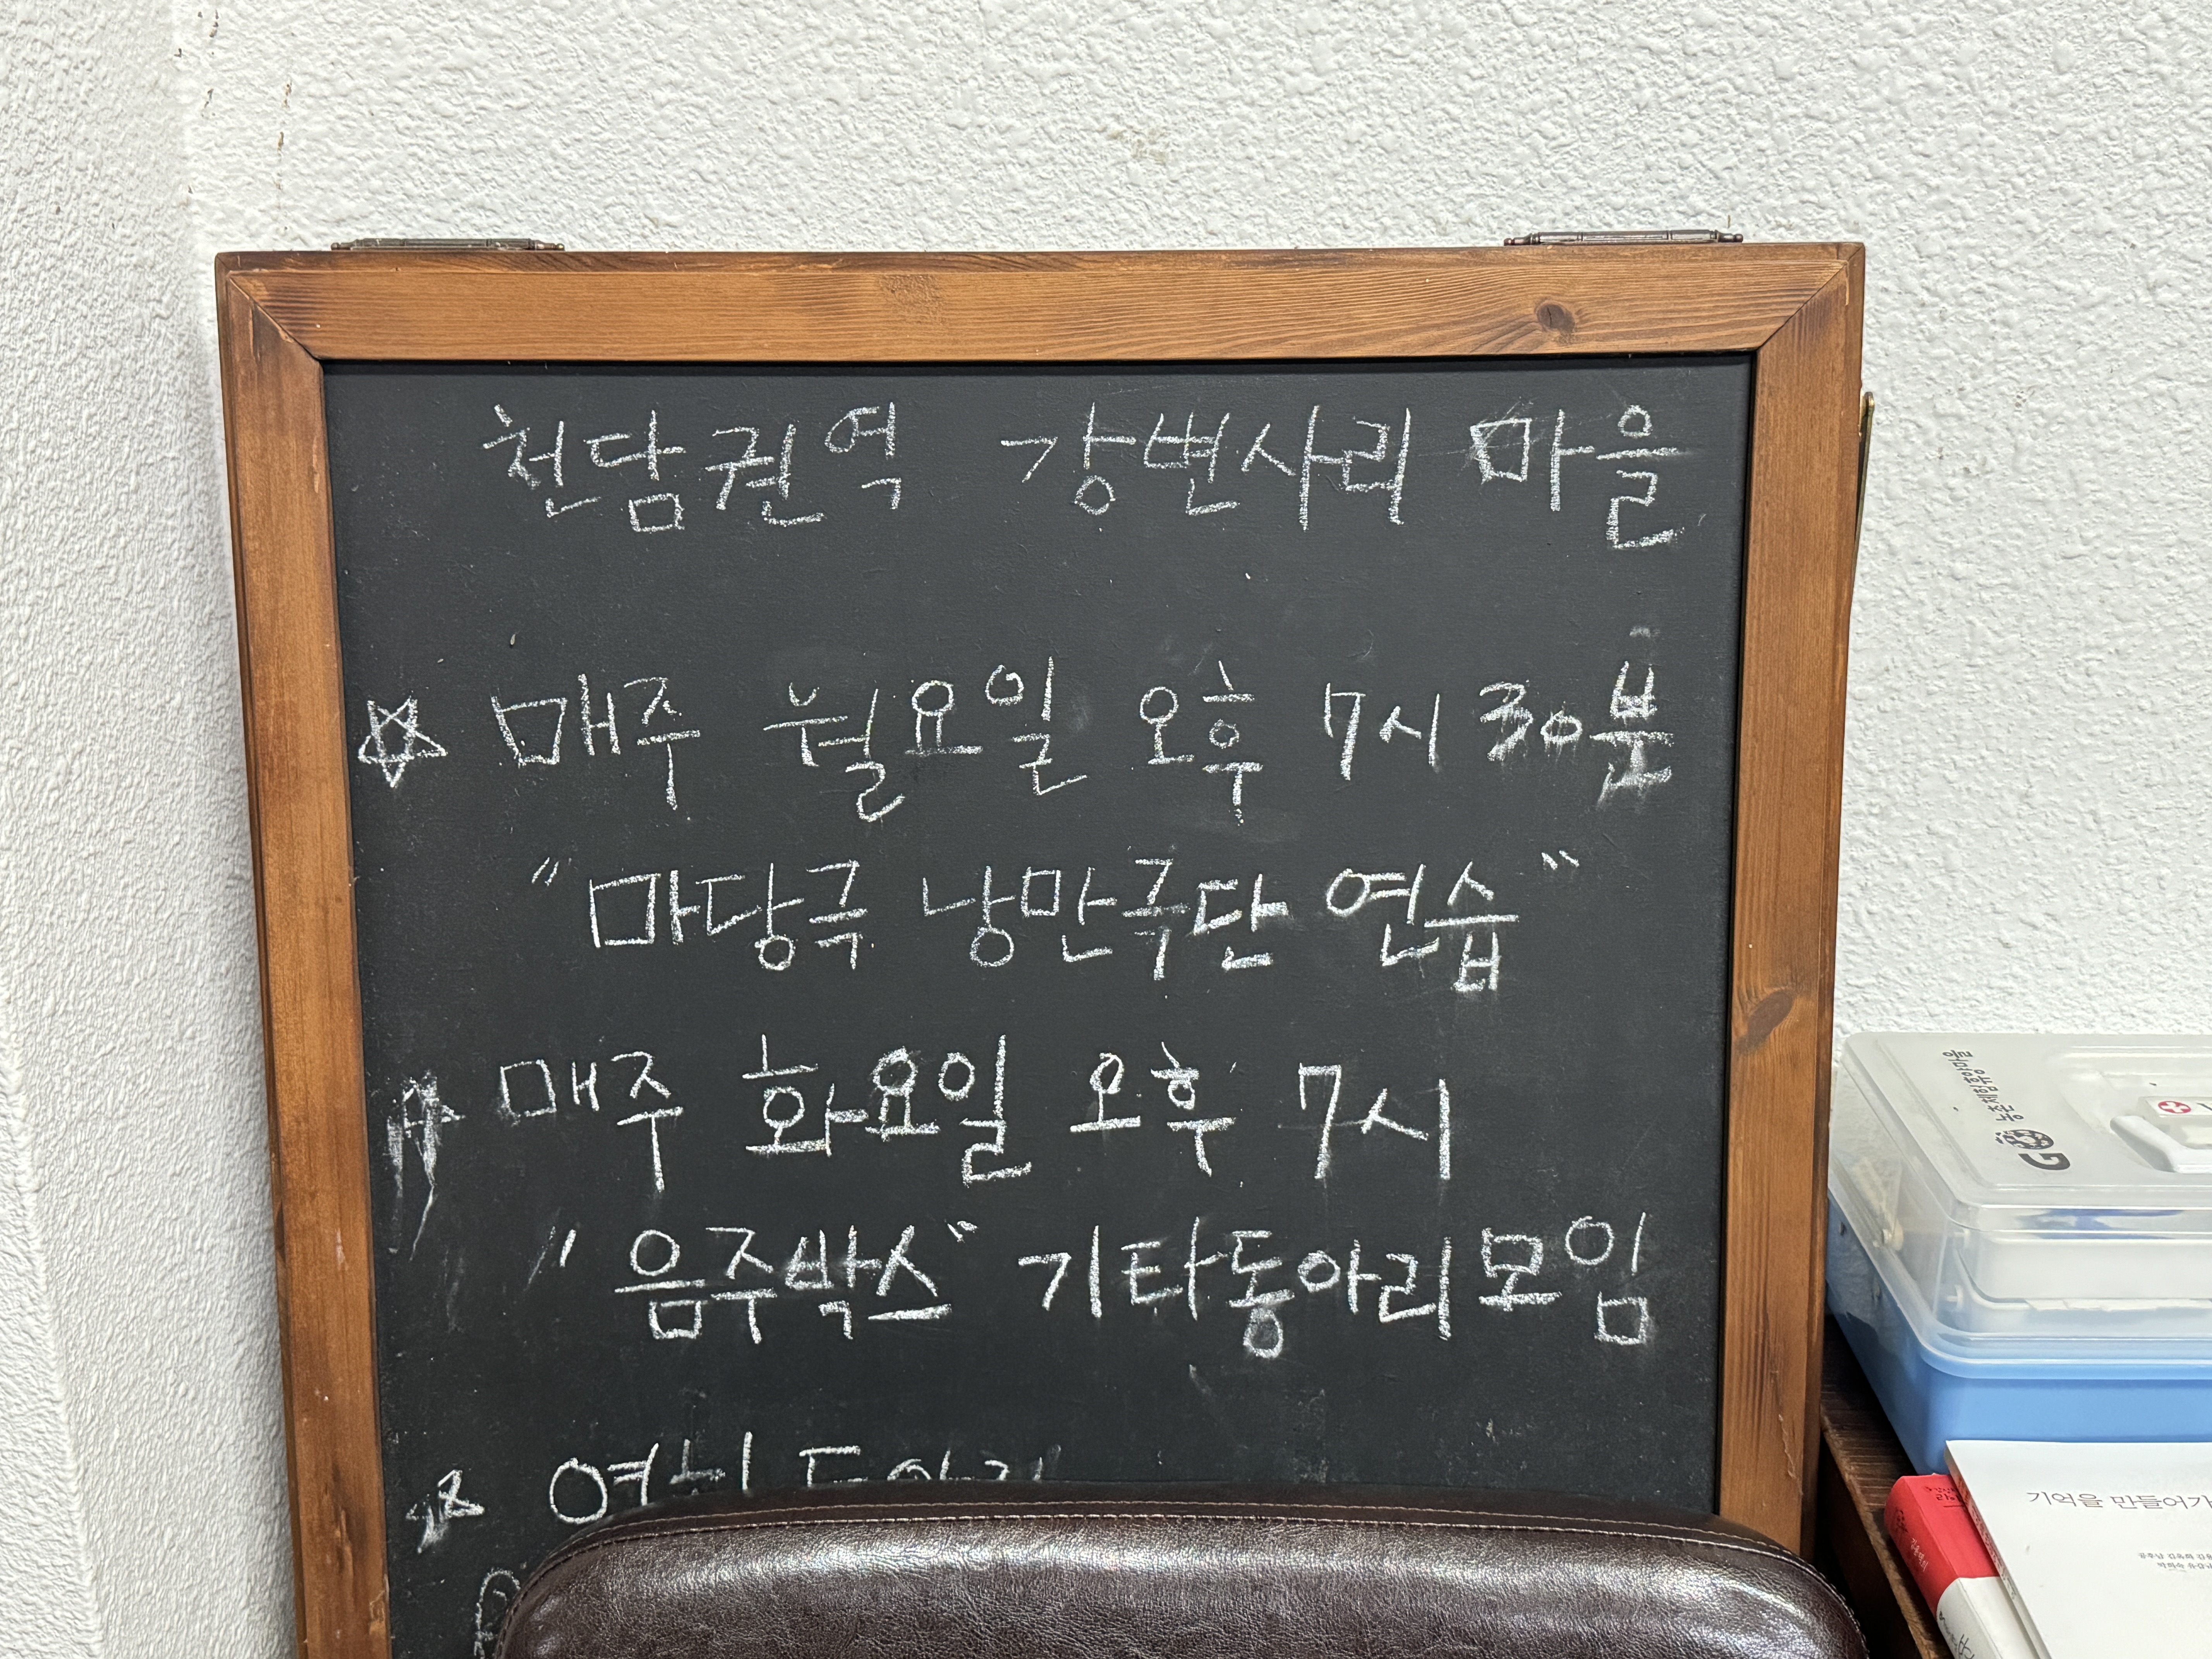 천담권역 강변사리 마을
☆ 매주 월요일 오후 7시 30분
"마당극 낭만극단 연습"
매주 화요일 오후 7시
"음주박스" 기타동아리모임
농촌체험휴양마을
기억을 만들어가